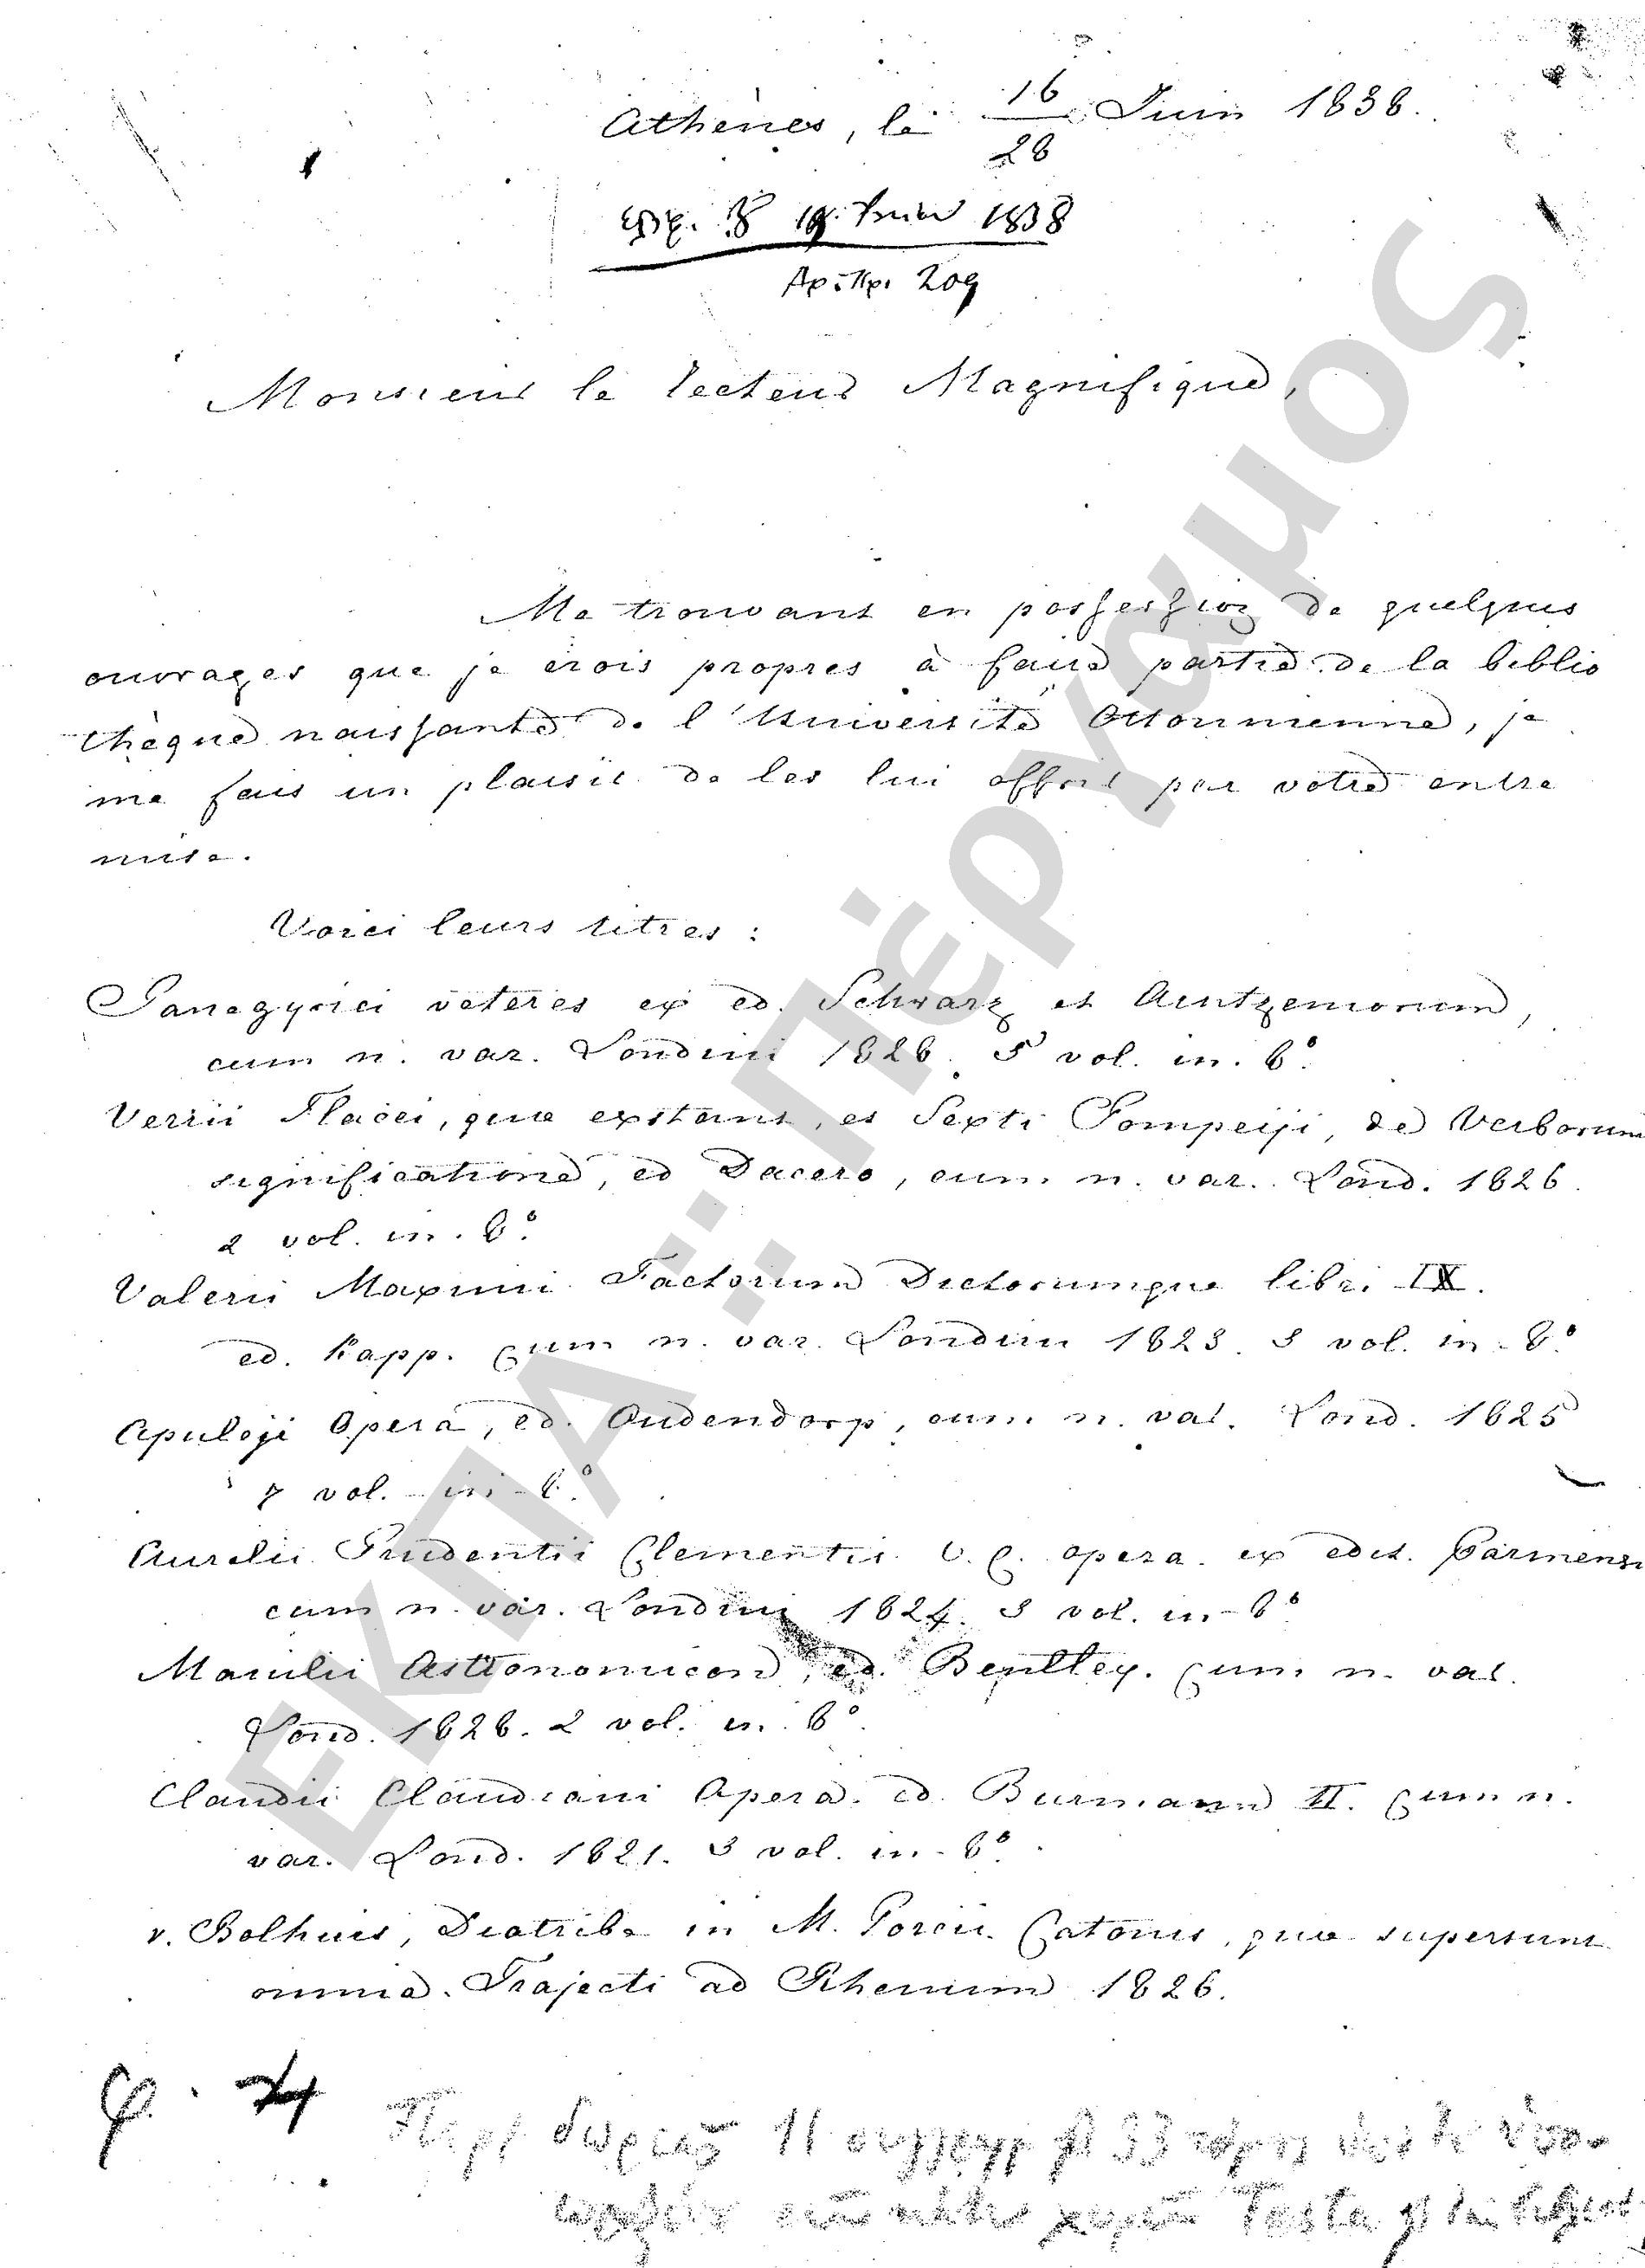 Athènes, le 16/28 Juin 1838.
19 1838
Αρ. Πρ. 209
Monsieur le recteur Magnifique,
Me trouvant en possession de quelques
ouvrages que je crois propres à faire partie de la biblio
thèque naissante de l'Université Ottonienne, je
me fais un plaisir de les lui offrir par votre entre
mise.
Voici leurs titres :
Panegyrici veteres ex ed. Schwarz et Arntzeniorum,
cum n. var. Londini 1828. 5 vol. in. 8°.
Verrii Flacci, quæ exstant, et Sexti Pompeji, de Verborum
significatione, ed Dacero, cum n. var. Lond. 1826.
2 vol. in. 8°.
Valerii Maximi Factorum Dictorumque libri IX.
ed. Kapp. cum n. var. Londini 1823. 3 vol. in-8°.
Apuleji Opera, ed. Oudendorp, cum n. var. Lond. 1825
7 vol. in-8°.
Aurelii Prudentii Clementis V. C. opera ex edit. Parmensi
cum n. var. Londini 1824. 3 vol. in-8°
Manilii Astronomicon, ed. Bentley. cum n. var.
Lond. 1828. 2 vol. in. 8°.
Claudii Claudiani Opera. ed. Burmann II. cum n.
var. Lond. 1821. 3 vol. in-8°.
v. Bolhuis, Diatribe in M. Porcii Catonis, quæ supersunt
omnia. Trajecti ad Rhenum 1826.
φ. 74 Περὶ δωρεᾶς 11 33
ΕΚΠΑ :: Πέργαμος